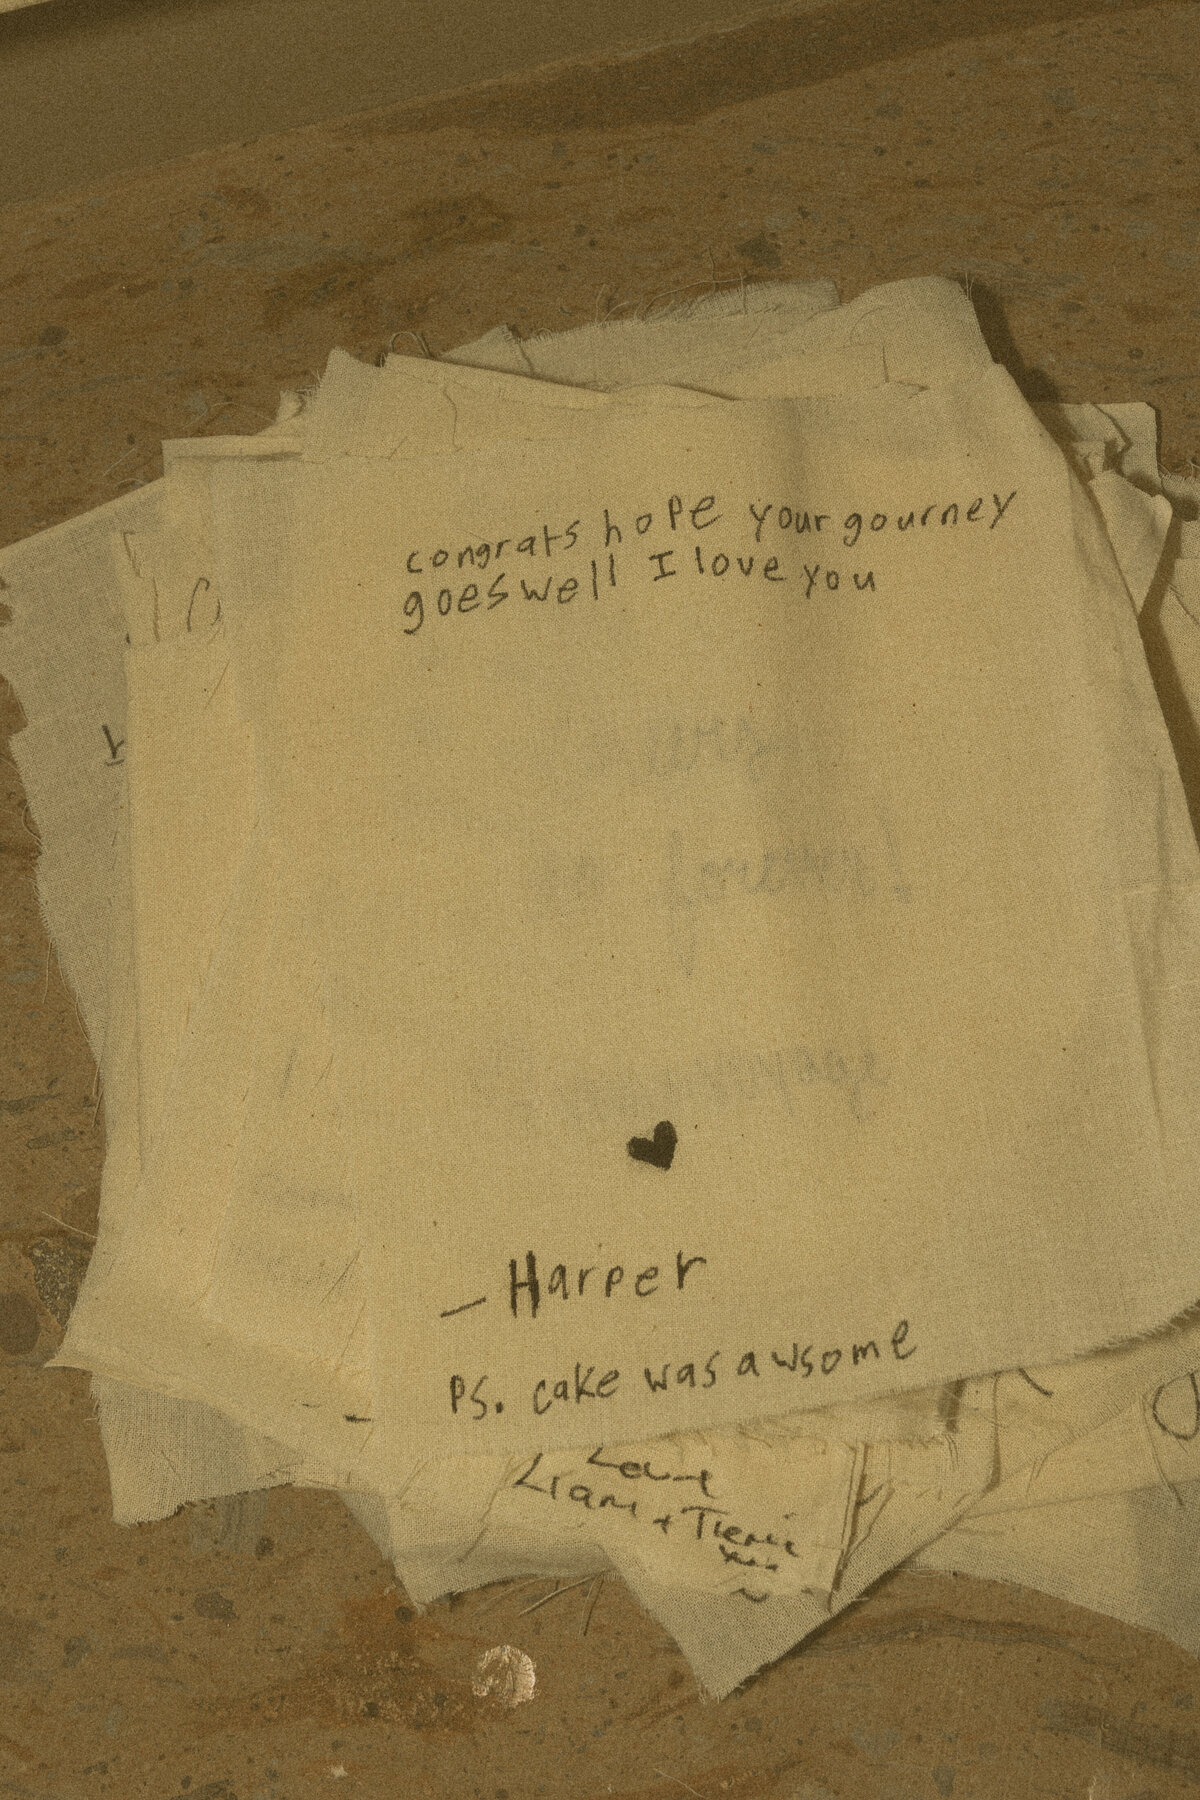 congrats hope your gourney
goes well I love you
♥
— Harper
PS. cake was awsome
Love
Liam +